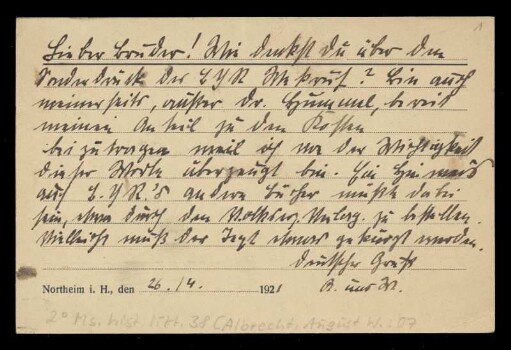 Lieber Bruder! Wie denkst Du über den
Sonderdruck der E Y R Nekrus? Bin auch
meinerseits, außer Dr. Hummel, bereit
meinen Anteil zu den Kosten
beizutragen weil ich von der Wichtigkeit
dieser Worte überzeugt bin. Ein Hinweis
auf E. Y R.'s andere Bücher müßte dabei
sein, etwa durch den Volkserz. Verlag zu bestellen.
Vielleicht muß der Text etwas gekürzt werden.
Deutscher Gruß
Northeim i. H., den 26./4. 1921
A. und W.
2° Ms. hist. litt. 38 [Albrecht, August W.: 67
1